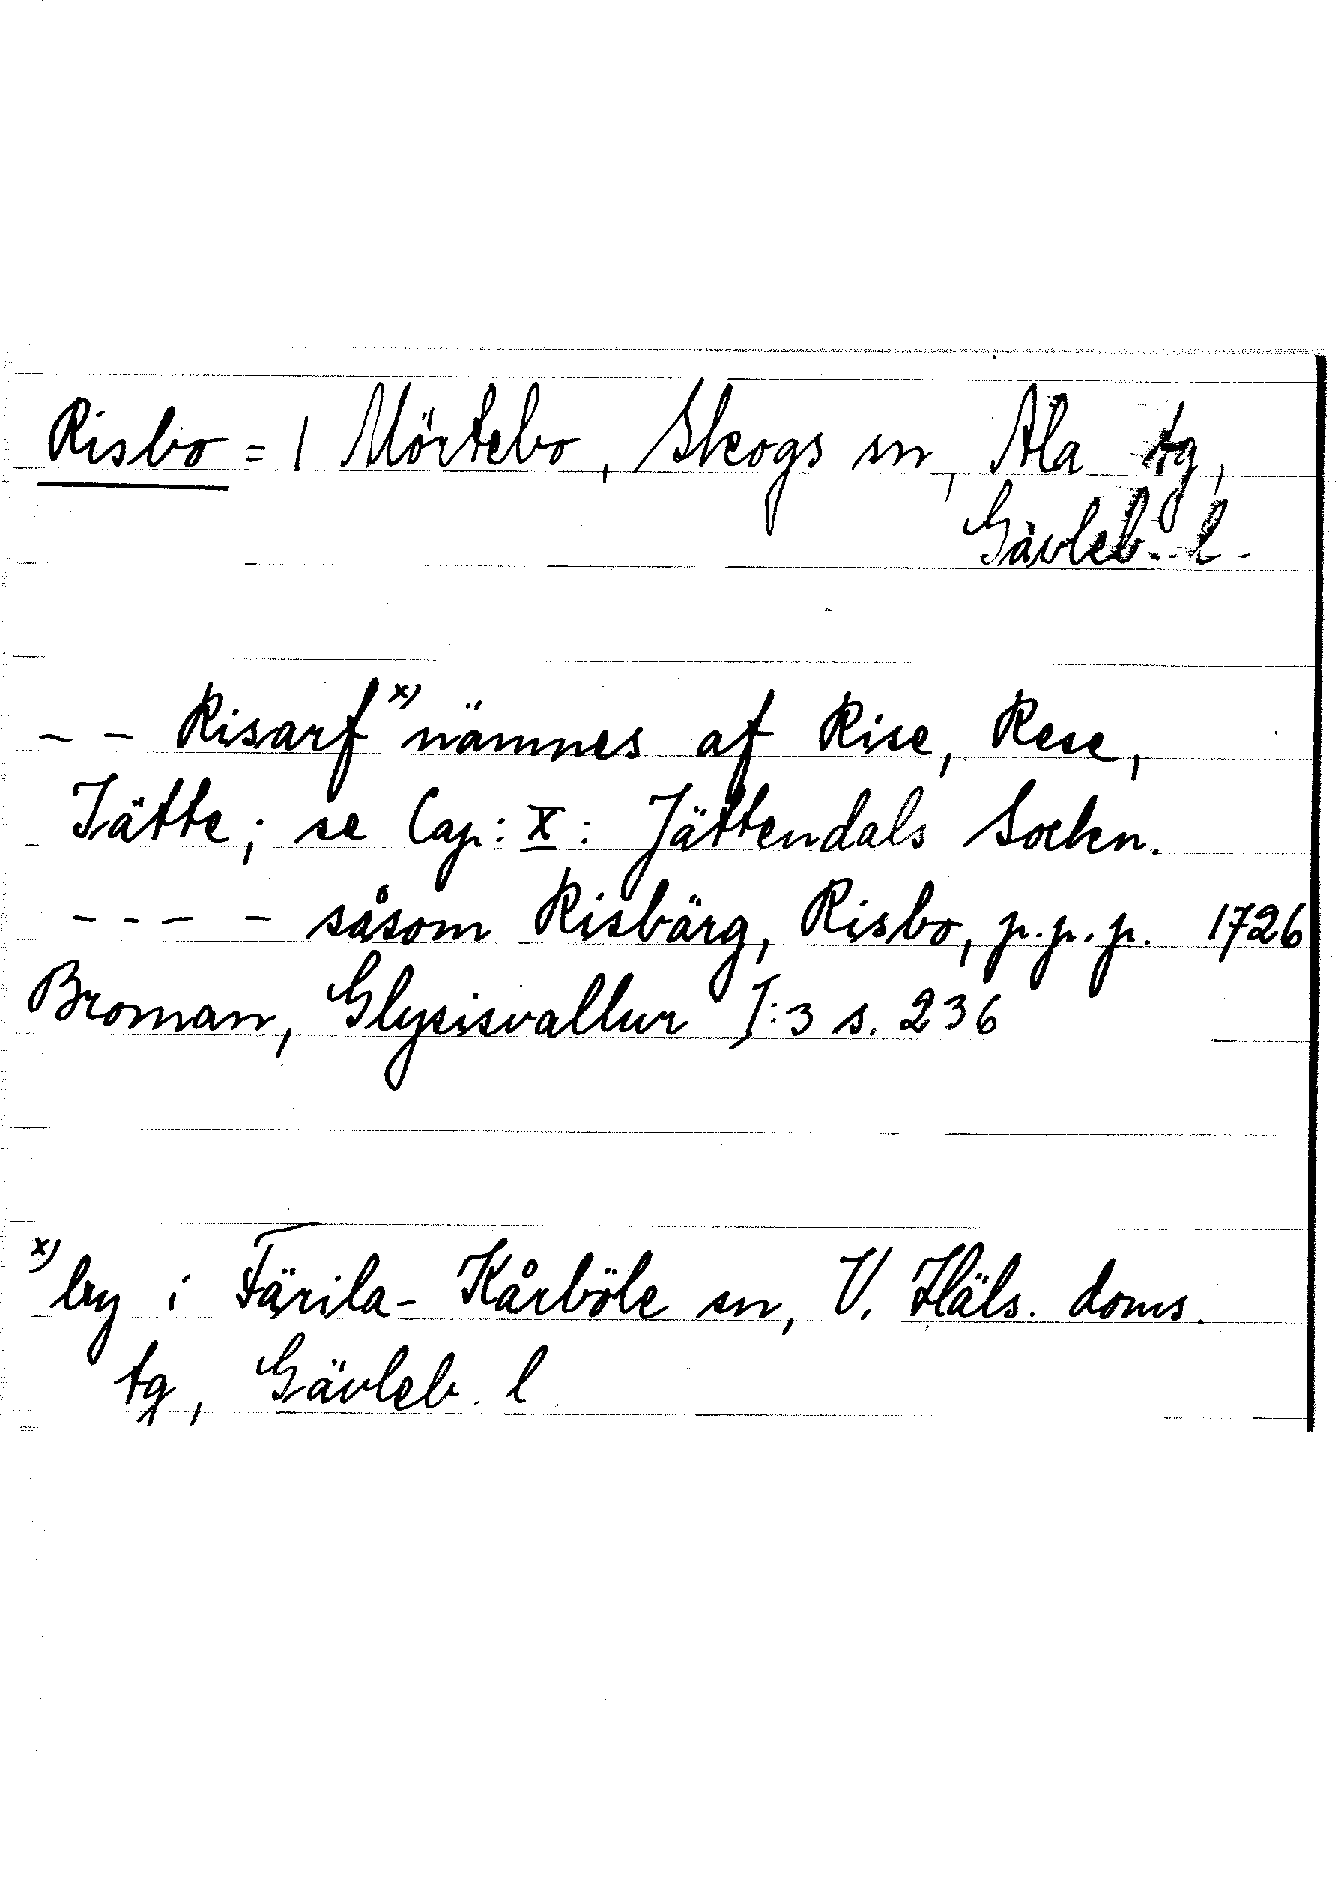 Risbo = 1 Mörtebo, Skogs sn, Ala tg,
Gävleb. l.
– – Risarf x) nämnes af Rise, Rese,
Jätte; se Cap: X: Jättendals Sockn.
– – – – såsom Risbärg, Risbo, p.p.p. 1726
Broman, Glysisvallur I:3 s. 236
x) by i Färila-Kårböle sn, V. Häls. doms.
tg, Gävleb. l